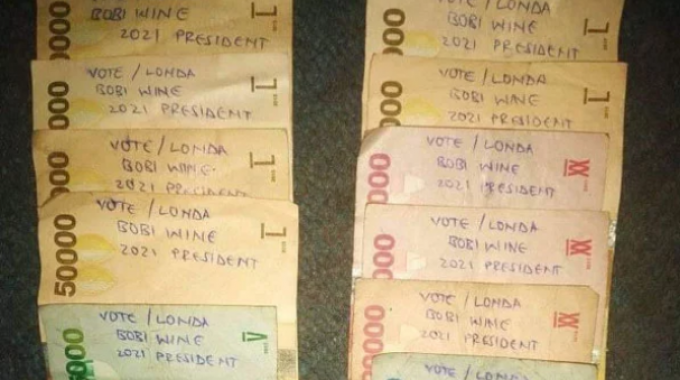 VOTE / LONDA
BOBI WINE
2021 PRESIDENT
0000
VOTE / LONDA
BOBI WINE
2021 PRESIDENT
000
VOTE / LONDA
BOBI WINE
2021 PRESIDENT
000
VOTE / LONDA
BOBI WINE
2021 PRESIDENT
50000
VOTE / LONDA
BOBI WINE
2021 PRESIDENT
000
VOTE / LONDA
BOBI WINE
2021 PRESIDENT
000
VOTE / LONDA
BOBI WINE
2021 PRESIDENT
000
VOTE / LONDA
BOBI WINE
2021 PRESIDENT
000
VOTE / LONDA
BOBI WINE
2021 PRESIDENT
000
VOTE / LONDA
BOBI WINE
2021 PRESIDENT
0000
VOTE / LONDA